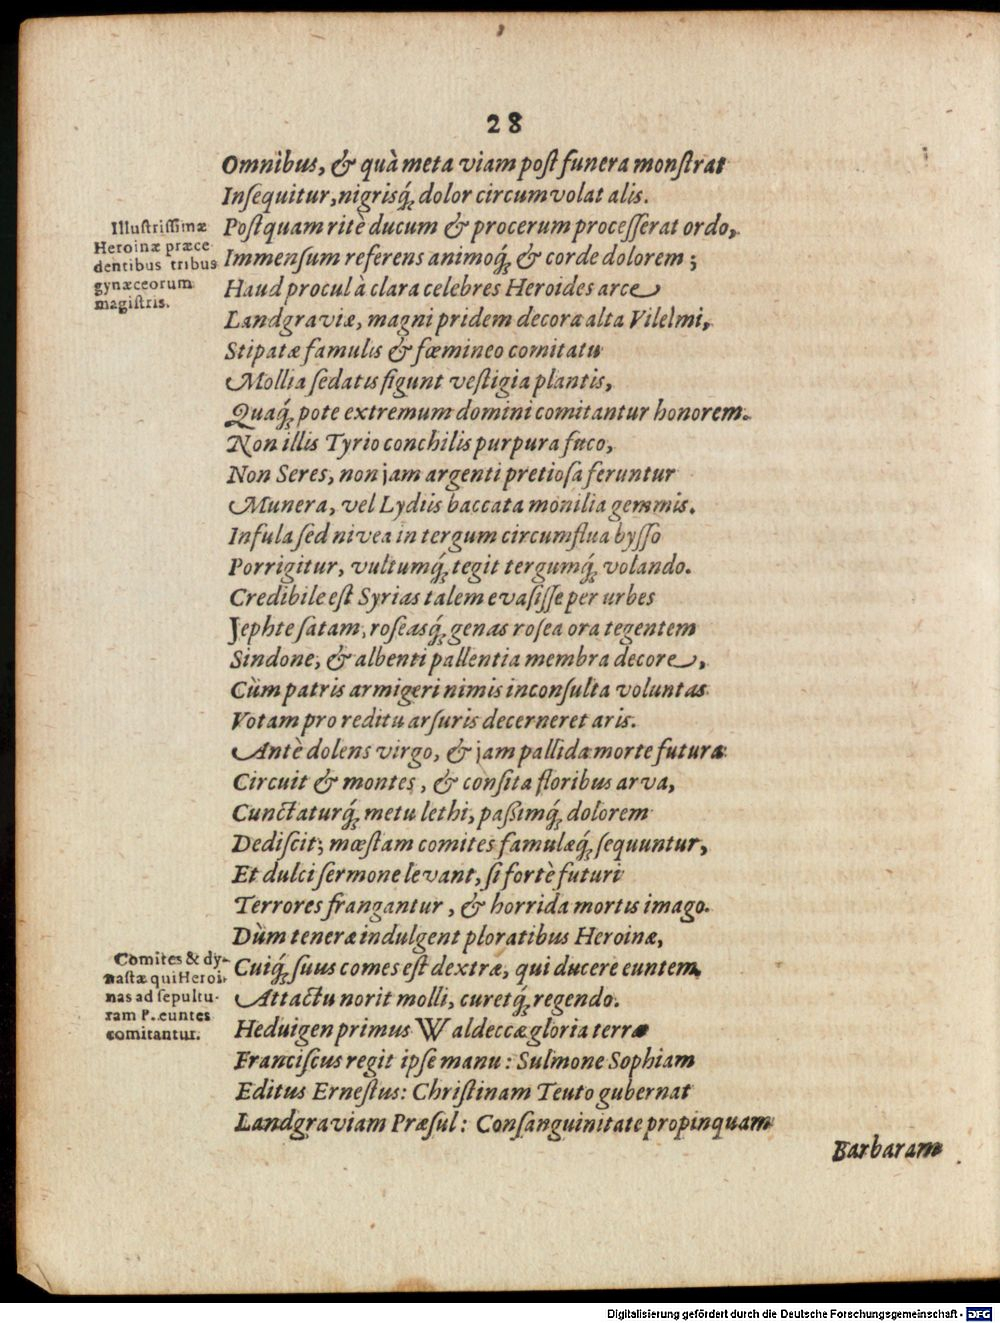 28
Omnibus, & quà meta viam post funera monstrat
Insequitur, nigrisq́; dolor circumvolat alis.
Illustrissimæ
Heroinæ præce
dentibus tribus
gynæceorum
magistris.
Postquam ritè ducum & procerum processerat ordo,
Immensum referens animoq́; & corde dolorem;
Haud procul à clara celebres Heroides arce
Landgraviæ, magni pridem decora alta Vilelmi,
Stipatæ famulis & fœmineo comitatu
Mollia sedatis figunt vestigia plantis,
Quaq́; pote extremum domini comitantur honorem.
Non illis Tyrio conchilis purpura fuco,
Non Seres, non jam argenti pretiosa feruntur
Munera, vel Lydiis baccata monilia gemmis.
Infula sed nivea in tergum circumflua bysso
Porrigitur, vultumq́; tegit tergumq́; volando.
Credibile est Syrias talem evasisse per urbes
Jephte satam, roseasq́; genas rosea ora tegentem
Sindone, & albenti pallentia membra decore,
Cùm patris armigeri nimis inconsulta voluntas
Votam pro reditu arsuris decerneret aris.
Antè dolens virgo, & jam pallida morte futura
Circuit & montes, & consita floribus arva,
Cunctaturq́; metu lethi, passimq́; dolorem
Dediscit; mœstam comites famulæq́; sequuntur,
Et dulci sermone levant, si fortè futuri
Terrores frangantur, & horrida mortis imago.
Dùm teneræ indulgent ploratibus Heroinæ,
Comites & dy-
nastæ qui Heroi-
nas ad sepultu-
ram P. euntes
comitantur.
Cuiq́; suus comes est dextræ, qui ducere euntem,
Attactu norit molli, curetq́; regendo.
Heduigen primus Waldeccæ gloria terræ
Franciscus regit ipse manu: Sulmone Sophiam
Editus Ernestus: Christinam Teuto gubernat
Landgraviam Præsul: Consanguinitate propinquam
Barbaram
Digitalisierung gefördert durch die Deutsche Forschungsgemeinschaft - DFG